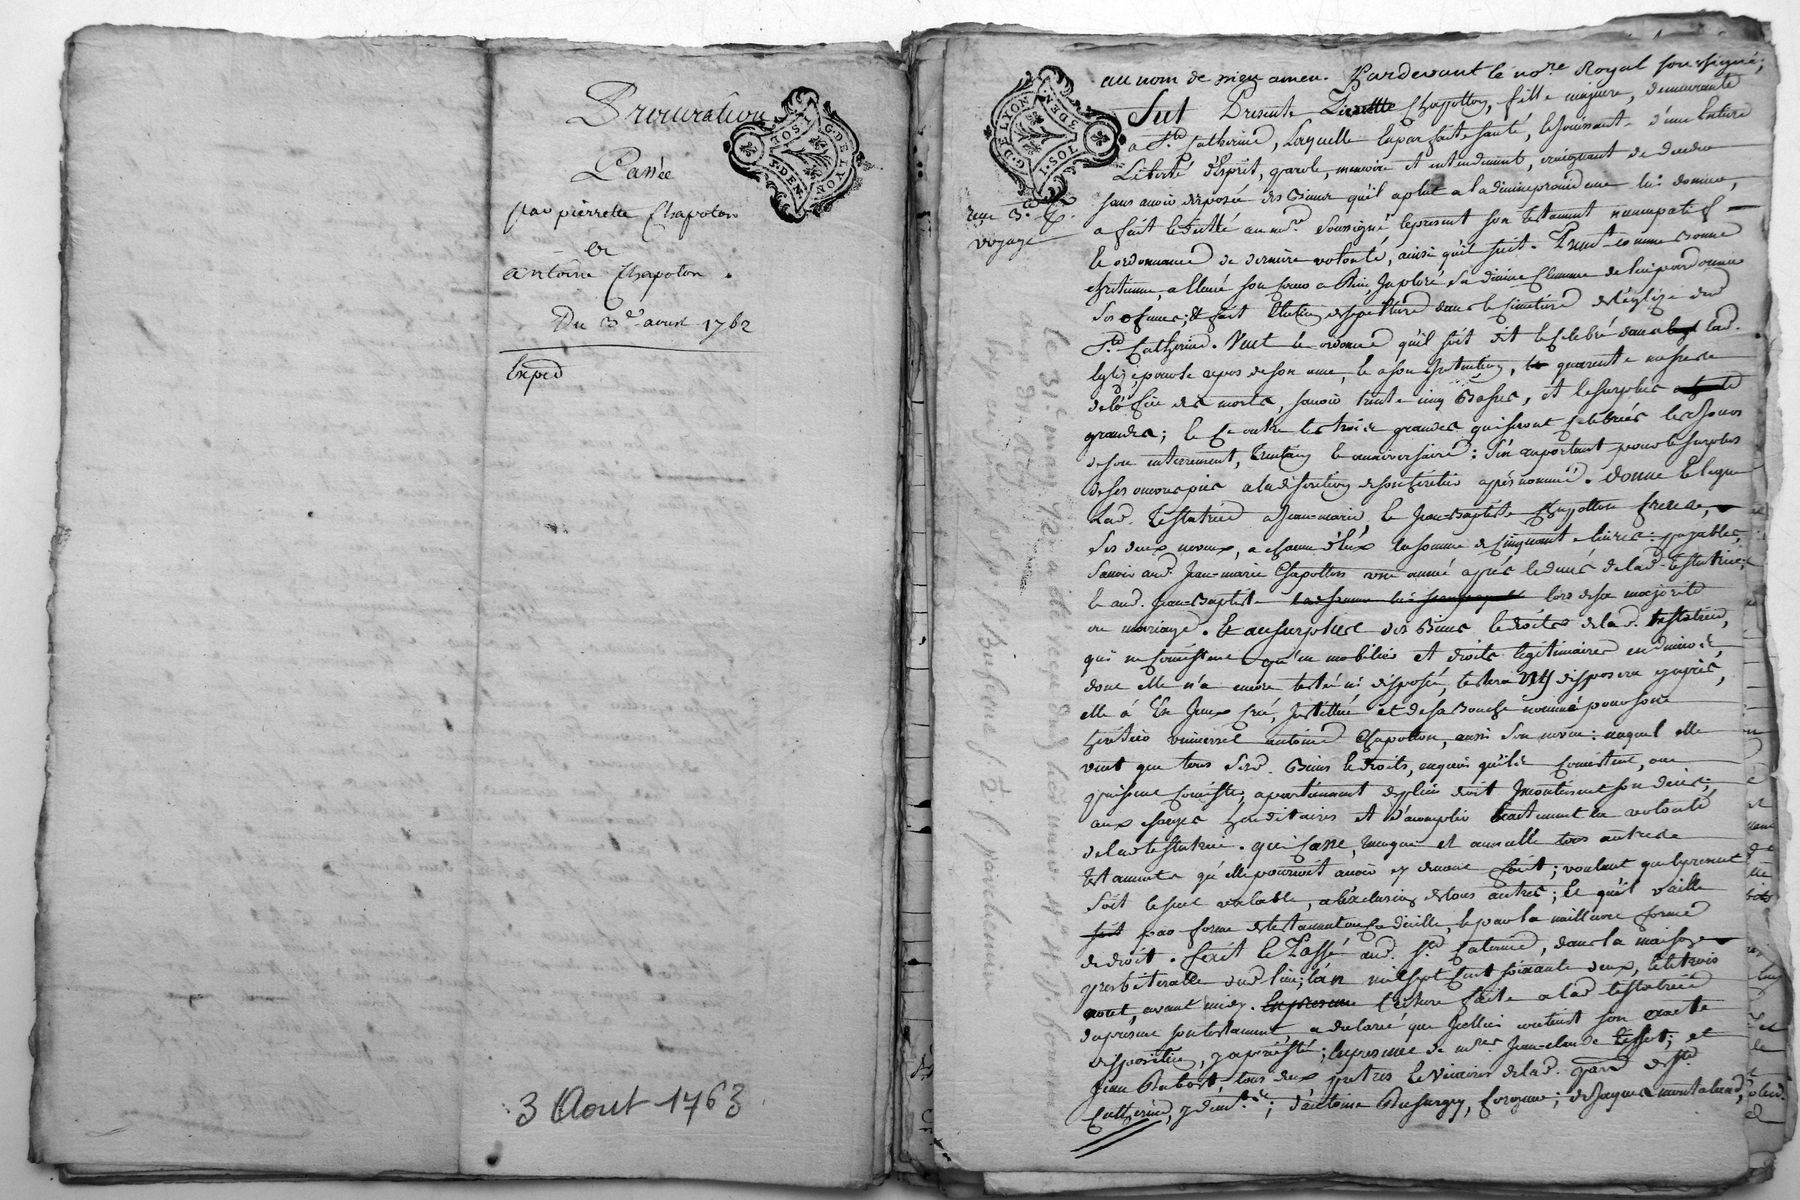 Procuration
Passée
par pierrette Chapoton
et
antoine Chapoton .
Du 3e aoust 1762
Exped
3 Aout 1763
G. DE LYON
I. SOL
3. DEN
G. DE LYON
I. SOL
3. DEN
voyage
au nom de Dieu amen. Pardevant le nore. Royal soussigné;
fut Presente Pierrette Chapotton, fille majeure, demeurante
a Ste Catherine, laquelle en parfaite santé, et jouissant d'une Entiere
Liberté d'Esprit, parole, memoire et entendement, craignant de deceder
sans avoir disposée des Biens qu'il a plut a la divine providence lui donner,
a fait et dicté au nre. soussigné le present son testament nuncupatif
et ordonnance de derniere volonté, ainsi qu'il suit. Premt. comme Bonne
chretienne, a Elevé son coeur a Dieu, Imploré sa divine Clemence de lui pardonner
ses ofences; et fait Election de sepulture dans le cimetiere de l'église dud.
Ste Catherine. Veut et ordonne qu'il soit dit et celebré dans lad.
Eglise, pour le repos de son ame, et a son Intention, quarente messes de
de l'office des morts, savoir trente cinq Basses, et le surplus
grandes; et ce outre les trois grandes qui seront celebrées les Jours
de son enterrement, trentain et anniversaire: s'en raportant pour le surplus
de ses oeuvres pies a la discretion de son heritier après nommé. donne et legue
Lad. testatrice a Jean-marie, et Jean-Baptiste Chapotton freres,
ses deux neveux, a chacun d'Eux la somme de cinquante livres: payables,
savoir aud. Jean-marie Chapotton une année après le decès de lad. testatrice;
et aud. Jean-Baptiste lors de sa majorité
ou mariage. Et au surplus des Biens et droits de lad. testatrice,
qui ne consistent qu'en mobilier et droits légitimaires en deniers,
dont elle n'a encore testé ni disposé, testera ny disposera cy après,
elle a Eu Iceux créé, Institué et de sa Bouche nommé pour son
heritier universel antoine Chapotton, aussi son neveu: auquel elle
veut que tous sesd. Biens et droits, en quoi qu'ils consistent, ou
puissent consister, apartiennent de plein droit Incontinent son decès;
aux charges hereditaires et d'accomplir Exactement la volonté
de lad. testatrice. qui casse, revoque et annulle tous autres
testaments qu'elle pourroit avoir cy devant fait; voulant que le present
soit le seul valable, a l'exclusion de tous autres; Et qu'il vaille
par forme de testament ou codicille, et par la meilleure forme
de droit. fait et Passé aud. Ste Caterine, dans la maison
presbiteralle dud. lieu, l'an mil sept cent soixante deux, et le trois
aout, avant midy. Lecture faite a lad. testatrice
du present son testament, a declaré que Icellui contient son exacte
disposition, y a persisté; En presence de mres. Jean-claude tissot; et
Jean Dubost, tous deux pretres et vicaires de lad. paroisse de Ste
Catherine, y demts.; d'antoine ; de Jaques montaland,